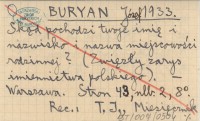 BURYAN Józef 1933.
Skąd pochodzi twoje imię i
nazwisko i nazwa miejscowości
rodzinnej? (Zwięzły zarys
imiennictwa polskiego).
Warszawa. Stron 48, nlb 2, 8°.
Rec.: T. J., Miesięcznik